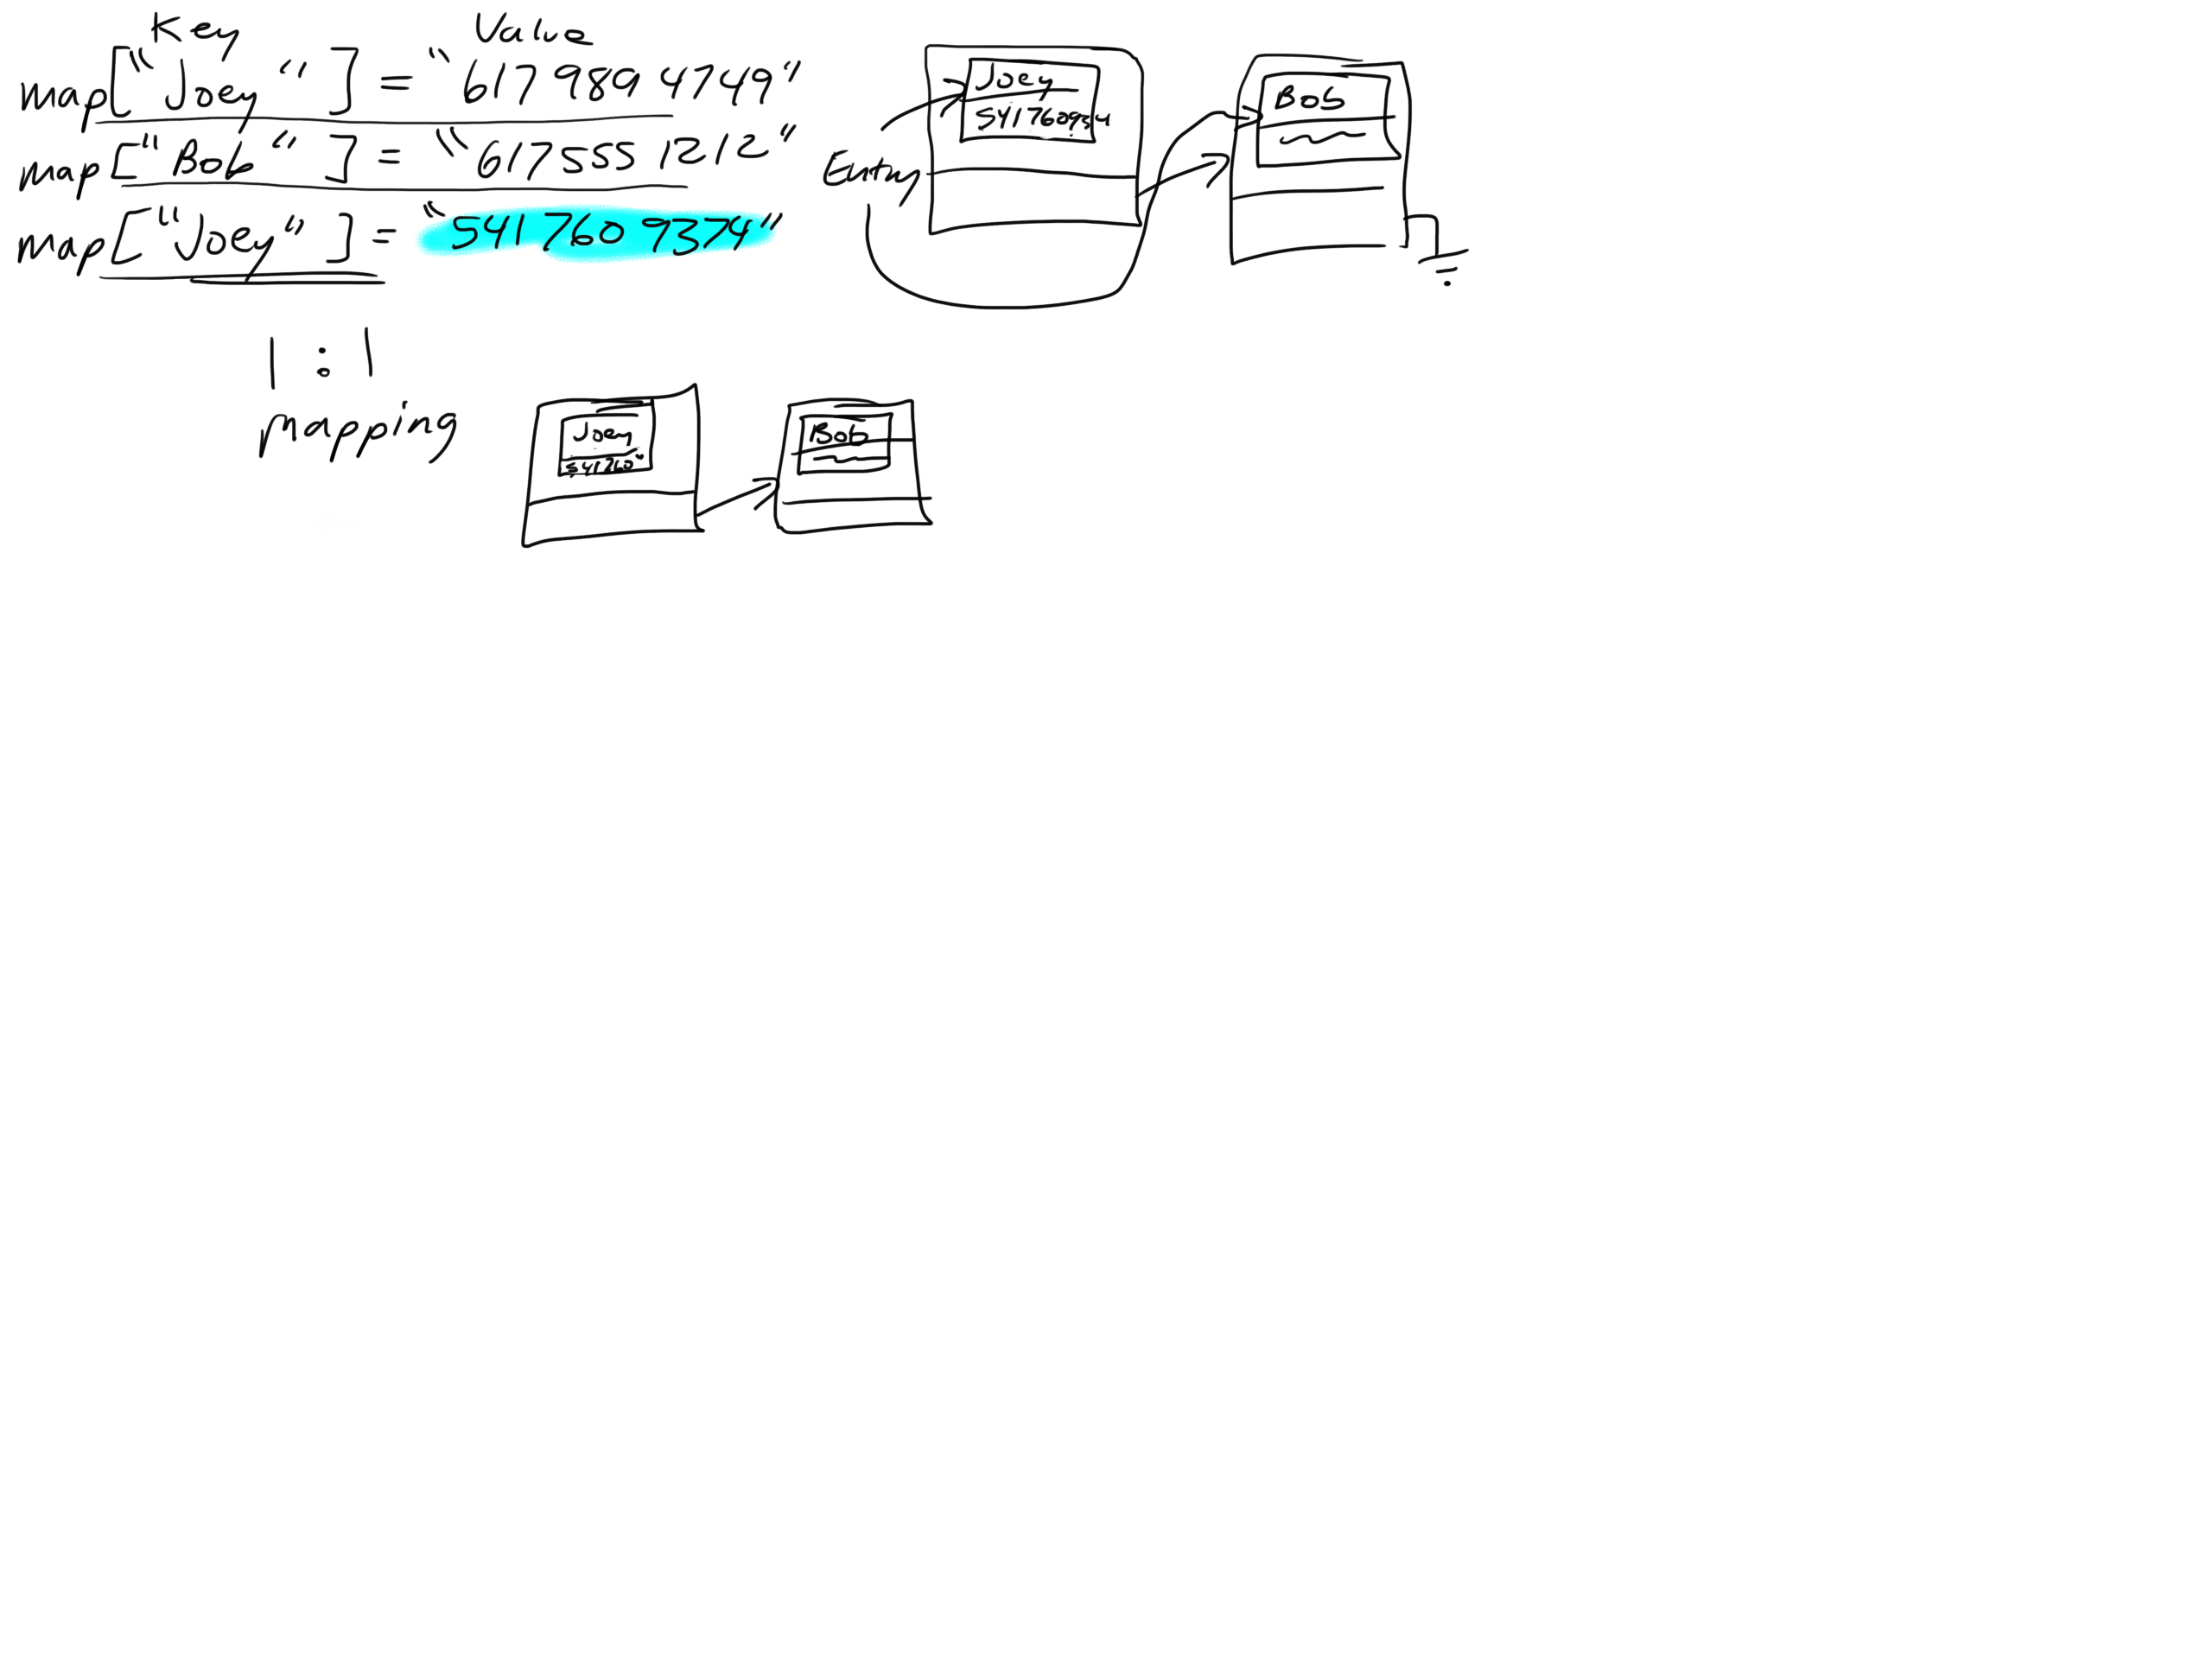 Key Value
map["Joey"] = "6179894749"
map["Bob"] = "6175551212"
map["Joey"] = "5417609374"
1:1
mapping
Entry
Joey
541760934
Bob
Joey
541760
Bob